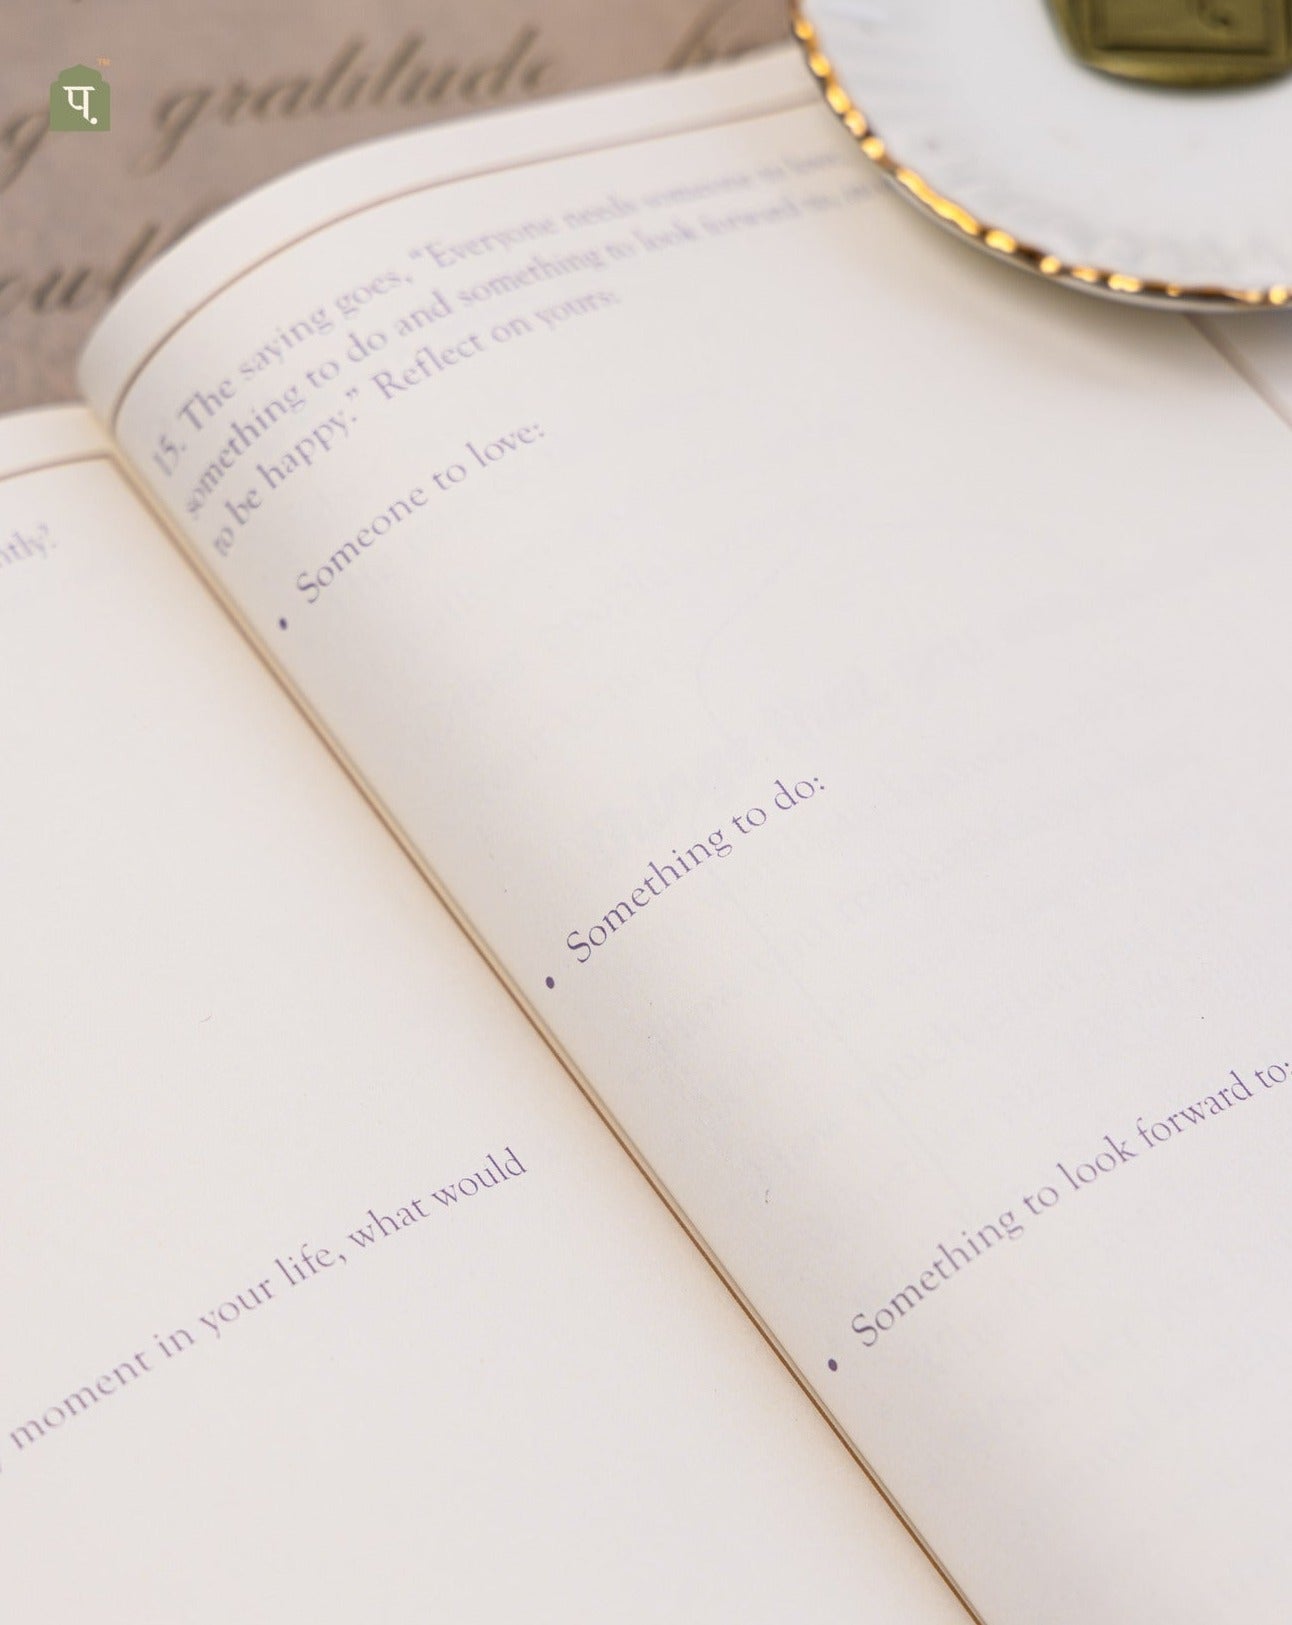 प.
TM
gratitude
ntly?
moment in your life, what would
15. The saying goes, “Everyone needs someone to love,
something to do and something to look forward to,
to be happy.” Reflect on yours:
• Someone to love:
• Something to do:
• Something to look forward to: